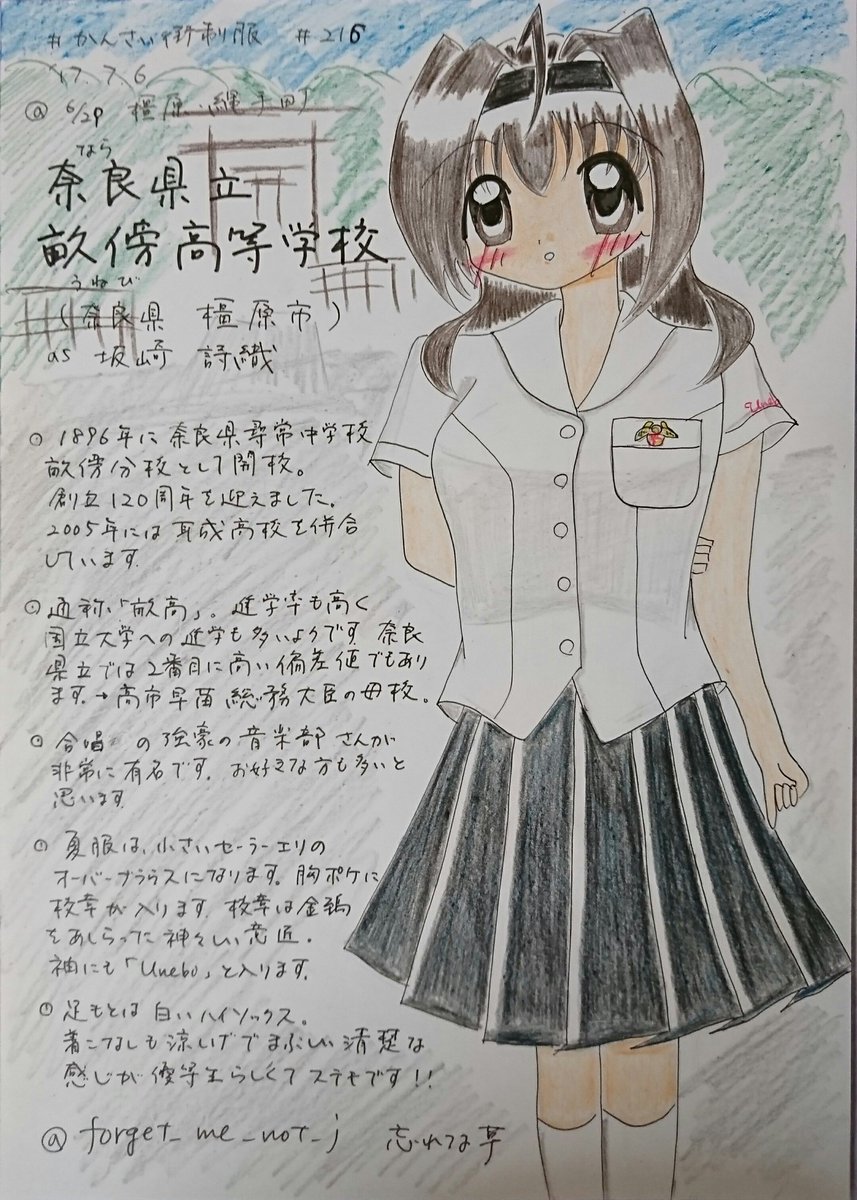 #かんさい衿制服 #216
'17.7.6
@ 6/29 橿原 縄手町
なら
奈良県立
畝傍高等学校
うねび
(奈良県 橿原市)
as 坂崎 詩織
1896年に奈良県尋常中学校
畝傍分校として開校。
創立120周年を迎えました。
2005年には耳成高校を併合
しています.
通称「畝高」。進学率も高く
国立大学への進学も多いようです. 奈良
県立では2番目に高い偏差値でもあり
ます.→高市早苗総務大臣の母校。
合唱 の強豪の音楽部さんが
非常に有名です. お好きな方も多いと
思います.
夏服は、小さいセーラーエリの
オーバーブラウスになります。胸ポケに
校章が入ります. 校章は金鵄
をあしらった神々しい意匠.
袖にも「Unebo」と入ります.
足もとは 白いハイソックス.
着こなしも涼しげでまぶしい清楚な
感じが優等生らしくてステキです!!
@forget_me_not_j 忘れな草